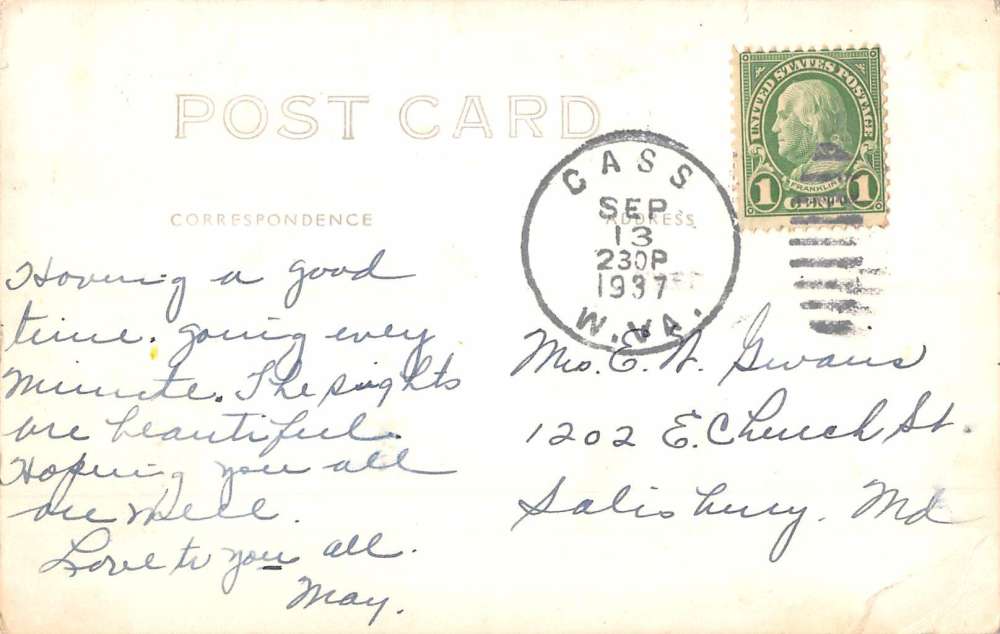 POST CARD
CORRESPONDENCE
ADDRESS
UNITED STATES POSTAGE
FRANKLIN
1 CENT 1
CASS
SEP
13
230P
1937
W. VA.
Having a good
time. going every
Minute. The sights
are beautiful.
Hoping you all
are Well.
Love to you all.
May.
Mrs. E. W.
1202 E. Church St.
Salisbury, Md